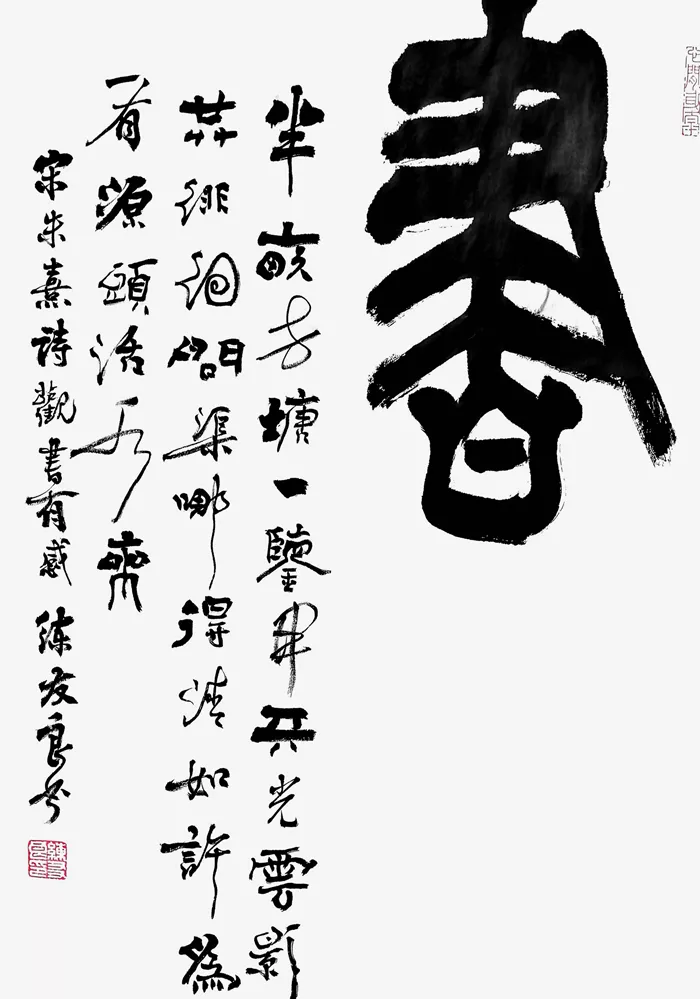 書
半畝方塘一鑒開天光雲影
共徘徊問渠哪得清如許為
有源頭活水來
宋朱熹詩觀書有感 練友良書